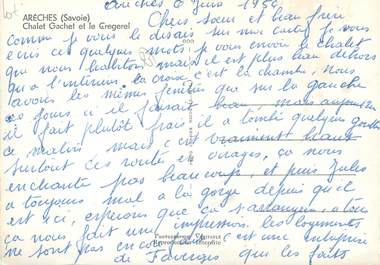 Arèches 6 Juin 1954
ARÈCHES (Savoie)
Chalet Gachet et le Gregerel
Chers sœur et beau frère
comme je vous le disais sur ma carte je vous
écris ces quelques mots je vous envoi le chalet
que nous habitons mais il est plus beau dehors
qu'a l'intérieur. la croix c'est la chambre, Nous
avons les mêmes fenêtres que sur la gauche
ces jours ci il faisait beau mais aujourd'hui
il fait plutôt frais il a tombé quelques gouttes
ce matin mais c'est vraiment beau
surtout ces routes et virages, ça nous
enchante pas beaucoup, et puis Jules
a toujours mal a la gorge depuis qu'il
est ici, espérons que ça s'arrangera, a tous
ça nous fait une impression, les logements
ne sont pas encore c'est une entreprise
de qui les faits